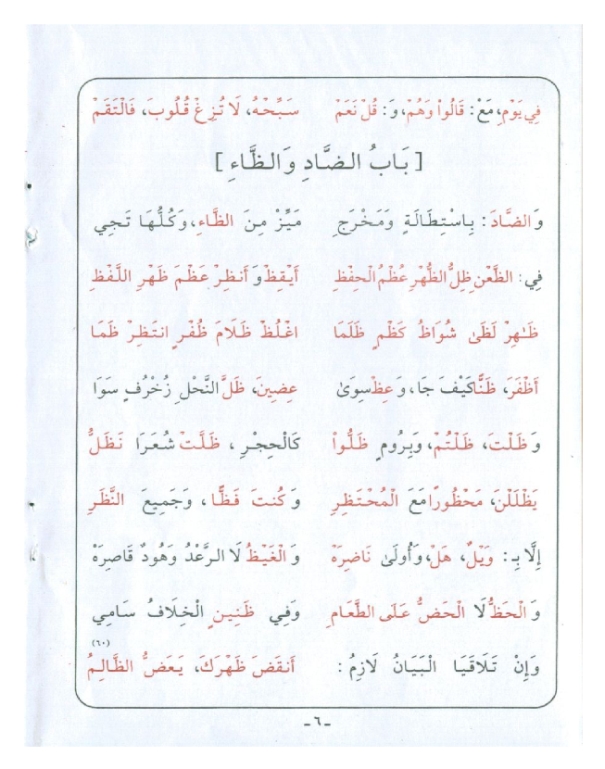 فِي يَوْمِ، مَعْ: قَالُوا وَهُمْ، وَ: قُلْ نَعَمْ سَبِّحْهُ، لَا تُزِغْ قُلُوبَ، فَالْتَقَمْ
[ بَابُ الضَّادِ وَالظَّاءِ ]
وَالضَّادَ: بِاسْتِطَالَةٍ وَمَخْرَجِ مَيِّزْ مِنَ الظَّاءِ، وَكُلُّهَا تَجِي
فِي: الظَّعْنِ ظِلُّ الظُّهْرِ عُظْمُ الْحِفْظِ أَيْقِظْ وَأَنظِرْ عَظْمَ ظَهْرِ اللَّفْظِ
ظَٰهِرْ لَظَىٰ شُوَاظُ كَظْمٍ ظَلَمَا اغْلُظْ ظَلَامَ ظُفْرٍ انتَظِرْ ظَمَا
أَظْفَرَ، ظَنًّا كَيْفَ جَا، وَعِظْ سِوَىٰ عِضِينَ، ظَلَّ النَّحْلِ زُخْرُفٍ سَوَا
وَظَلْتَ، ظَلْتُمْ، وَبِرُومٍ ظَلُّوا كَالْحِجْرِ، ظَلَّتْ شُعَرَا نَظَلُّ
يَظْلَلْنَ، مَحْظُورًا مَعَ الْمُحْتَظِرِ وَكُنتَ فَظًّا، وَجَمِيعَ النَّظَرِ
إِلَّا بِـ: وَيْلٌ، هَلْ، وَأُولَىٰ نَاضِرَهْ وَالْغَيْظُ لَا الرَّعْدُ وَهُودٌ قَاصِرَهْ
وَالْحَظُّ لَا الْحَضُّ عَلَى الطَّعَامِ وَفِي ظَنِينٍ الْخِلَافُ سَامِي
وَإِنْ تَلَاقَيَا الْبَيَانُ لَازِمُ: أَنقَضَ ظَهْرَكَ، يَعَضُّ الظَّالِمُ (٦٠)
-٦-